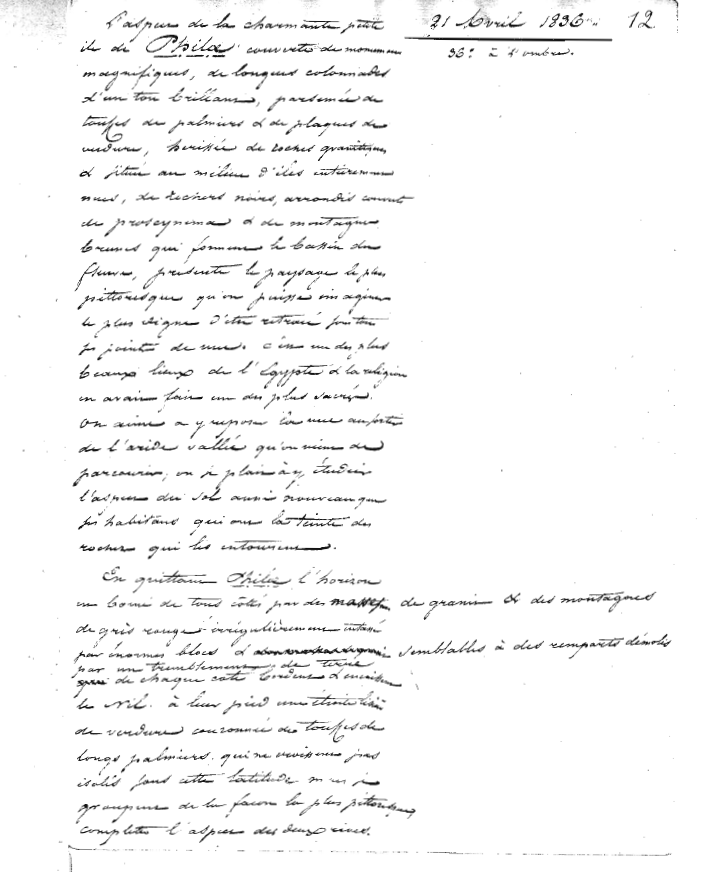 21 Avril 1836 12
36° à l'ombre.
L'aspect de la charmante petite
île de Philæ couverte de monumens
magnifiques, de longues colonnades
d'un ton brillant, parsemée de
touffes de palmiers & de plaques de
verdure, hérissée de roches granitiques
& située au milieu d'îles entièrement
nues, de rochers noirs, arrondis couverts
de proscynema & de montagnes
brunes qui forment le bassin du
fleuve, présente le paysage le plus
pittoresque qu'on puisse imaginer
le plus digne d'être retracé sous tous
ses points de vue. c'est un des plus
beaux lieux de l'Égypte & la religion
en avait fait un des plus sacrés.
On aime a y reposer la vue au sortir
de l'aride vallée qu'on vient de
parcourir, on se plait à y étudier
l'aspect du sol aussi nouveau que
ses habitans qui ont la teinte des
roches qui les entourent.
En quittant Philæ l'horizon
est borné de tous côtés par des masses de granit & des montagnes
de grès rouge irrégulièrement entassé
par énormes blocs semblables à des remparts démolis
par un tremblement de terre
de chaque côté bordent & encaissent
le Nil. à leur pied une étroite lisière
de verdure couronnée de touffes de
longs palmiers. qui ne croissent pas
isolés sous cette latitude mais se
groupent de la façon la plus pittoresque,
complète l'aspect des deux rives.